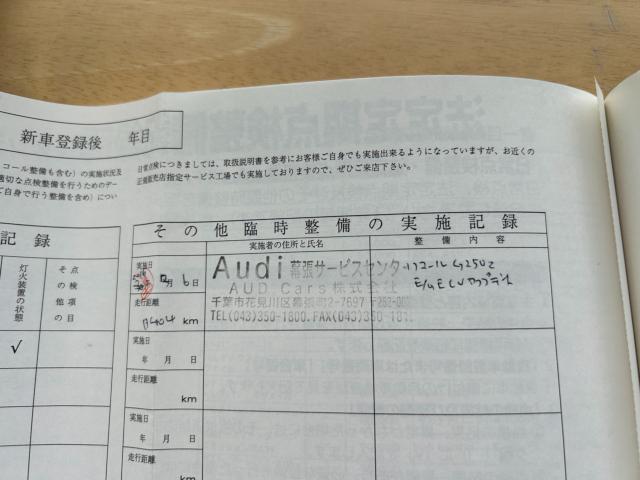 新車登録後 年目
コール整備も含む）の実施状況及
適切な点検整備を行うためのデー
ご自身で行う整備を含め）につい
日常点検につきましては、取扱説明書を参考にお客様ご自身でも実施出来るようになっていますが、お近くの
正規販売店指定サービス工場でも実施しておりますので、ぜひご来店下さい。
記録
灯火装置の状態
その他の点検項目
√
その他臨時整備の実施記録
実施者の住所と氏名
整備内容
実施日
月 6日
走行距離
km
Audi 幕張サービスセンター
AUD. Cars 株式会社
千葉市花見川区幕張町2-7697 〒262-00
TEL(043)350-1800.FAX(043)350-181
リコール
実施日
年 月 日
走行距離
km
実施日
年 月 日
走行距離
km